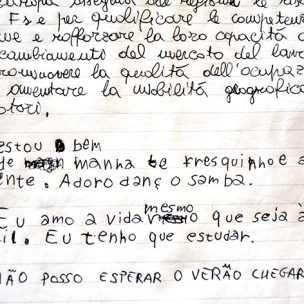 Fse per qualificare le competen
ve e rafforzare la loro capacità d
cambiamento del mercato del lavo
romuovere la qualità dell'occupaz
aumentare la mobilità geografica
otori.
estou bem
de manha te fresquinho e a
ente. Adoro danç o samba.
mesmo
Eu amo a vida o que seja à
il. Eu tenho que estudar.
NÃO POSSO ESPERAR O VERÃO CHEGAR